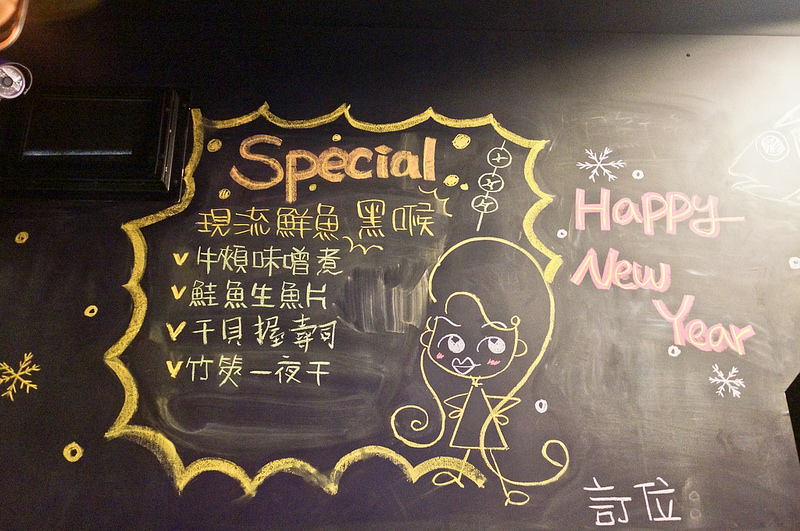 Special
現流鮮魚 黑喉
✓牛頰味噌煮
✓鮭魚生魚片
✓干貝握壽司
✓竹筴一夜干
Happy
New
Year
訂位